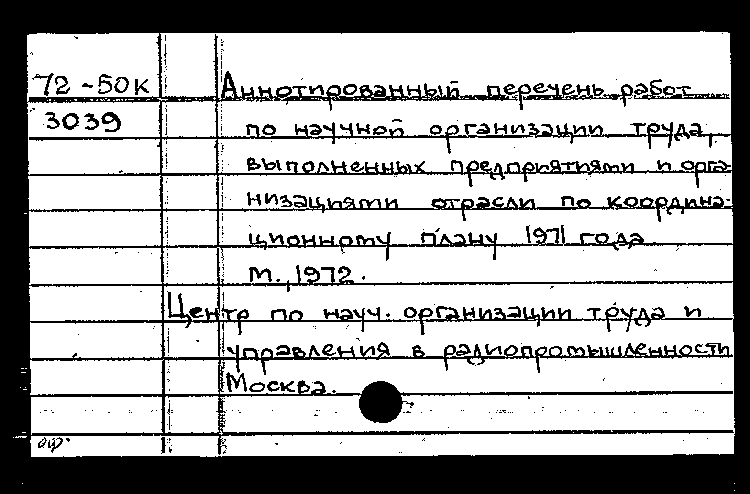 72-50к Аннотированный перечень работ
3039 по научной организации труда,
выполненных предприятиями и орга-
низациями отрасли по координа-
ционному плану 1971 года
М., 1972.
Центр по науч. организации труда и
управления в радиопромышленности
Москва.